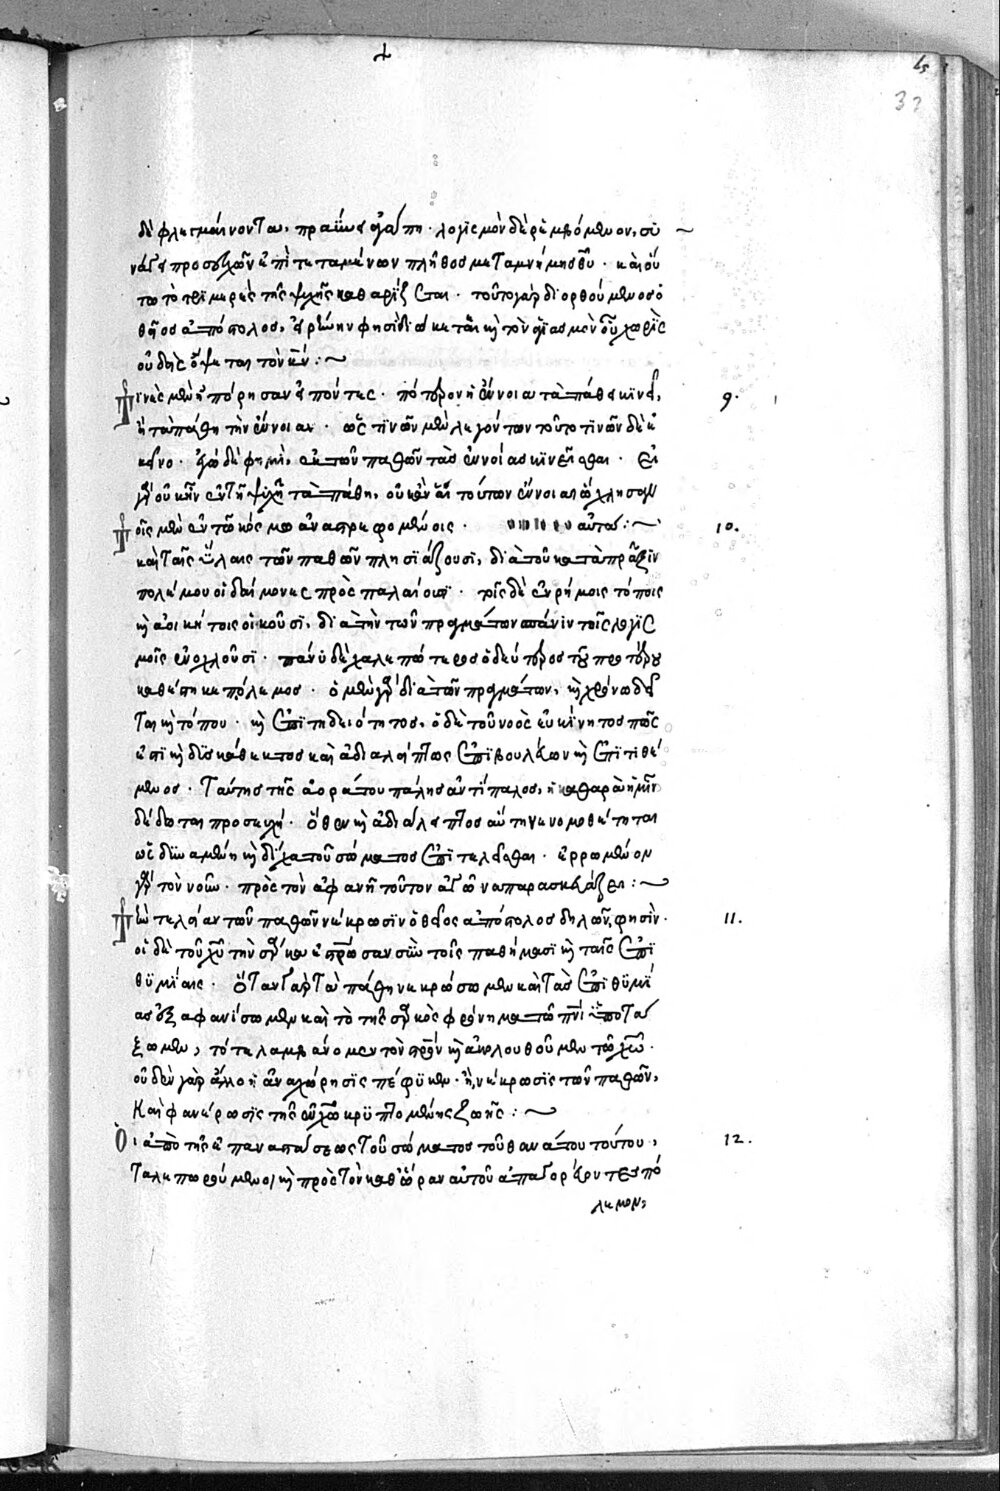 λς
32
δὲ φλεγμαίνοντα, πραΰνει ἀγάπη. λογισμὸν δὲ ῥεμβόμενον, συ
νάγει προσευχῶν ἐπιτεταμένων πλῆθος μετὰ μνήμης θυ. καὶ οὕ
τω τὸ τριμερὲς τῆς ψυχῆς καθαρίζεται. τοῦτο γὰρ διορθούμενος ὁ
θεῖος ἀπόστολος, εἰρήνην φησὶ διώκετε καὶ τὸν ἁγιασμὸν οὗ χωρὶς
οὐδεὶς ὄψεται τὸν κν :~
Τινὲς μὲν ἠπόρησαν εἰπόντες. πότερον ἡ ἔννοια τὰ πάθη κινεῖ,
ἢ τὰ πάθη τὴν ἔννοιαν. ὥς τινῶν μὲν λεγόντων τοῦτο τινῶν δὲ ἐ
κεῖνο. ἐγὼ δέ φημι, ἐκ τῶν παθῶν τὰς ἐννοίας κινεῖσθαι. εἰ
γὰρ οὐκ ἦν ἐν τῇ ψυχῇ τὰ πάθη, οὐκ ἂν αἱ τούτων ἔννοιαι ὤχλησαν
αὐτήν :~
Τοῖς μὲν ἐν τῷ κόσμω ἀναστρεφομένοις.
καὶ ταῖς ὕλαις τῶν παθῶν πλησιάζουσι, διὰ τοῦ κατὰ πρᾶξιν
πολέμου οἱ δαίμονες πρὸς παλαίουσι. τοῖς δὲ ἐν ἐρήμοις τόποις
καὶ ἀοικήτοις οἰκοῦσι, διὰ τὴν τῶν πραγμάτων σπάνιν τοῖς λογισ
μοῖς ἐνοχλοῦσι. πολὺ δὲ χαλεπώτερος ὁ δεύτερος τοῦ προτέρου
καθέστηκε πόλεμος. ὁ μὲν γὰρ διὰ τῶν πραγμάτων, καὶ χρόνω δεῖ
ται καὶ τόπου. καὶ ἐπιτηδειότητος, ὁ δὲ τοῦ νοὸς εὐκίνητος πῶς
ἐστι καὶ δυσκάθεκτος καὶ ἀδιαλείπτως ἐπιβουλεύων καὶ ἐπιτιθέ
μενος. ταύτης τῆς ἀοράτου πάλης ἀντίπαλος, ἡ καθαρὰ ἡμῖν
δέδοται προσευχή. ὅθεν καὶ ἀδιάλειπτος αὕτη νενομοθέτηται
ὡς δυναμένη καὶ δίχα τοῦ σώματος ἐπιτελεῖσθαι. ἐρρωμένον
γὰρ τὸν νοῦν. πρὸς τὸν ἀφανῆ τοῦτον ἀγῶνα παρασκευάζει :~
Τὴν τελείαν τῶν παθῶν νέκρωσιν ὁ θεῖος ἀπόστολος δηλῶν, φησὶν.
οἱ δὲ τοῦ χυ τὴν σάρκα ἐστρωσαν σὺν τοῖς παθήμασι καὶ ταῖς ἐπι
θυμίαις. ὅταν γὰρ τὰ πάθη νεκρώσωμεν καὶ τὰς ἐπιθυμί
ας ἐξαφανίσωμεν καὶ τὸ τῆς σαρκὸς φρόνημα τῷ πνι ὑποτά
ξωμεν, τότε λαμβάνομεν τὸν στρον καὶ ἀκολουθοῦμεν τῷ χω.
οὐδὲν γὰρ ἄλλο ἡ ἀναχώρησις πέφυκεν. ἢ νέκρωσις τῶν παθῶν,
Καὶ φανέρωσις τῆς ἐν χω κρυπτομένης ζωῆς :~
Οἱ ἀπὸ τῆς ἐπαναστάσεως τοῦ σώματος τοῦ θανάτου τούτου,
ταλαιπωρούμενοι καὶ πρὸς τὸν καθ' ὥραν αὐτοῦ ἀπαγορεύοντες πό
λεμον,
9.
10.
11.
12.